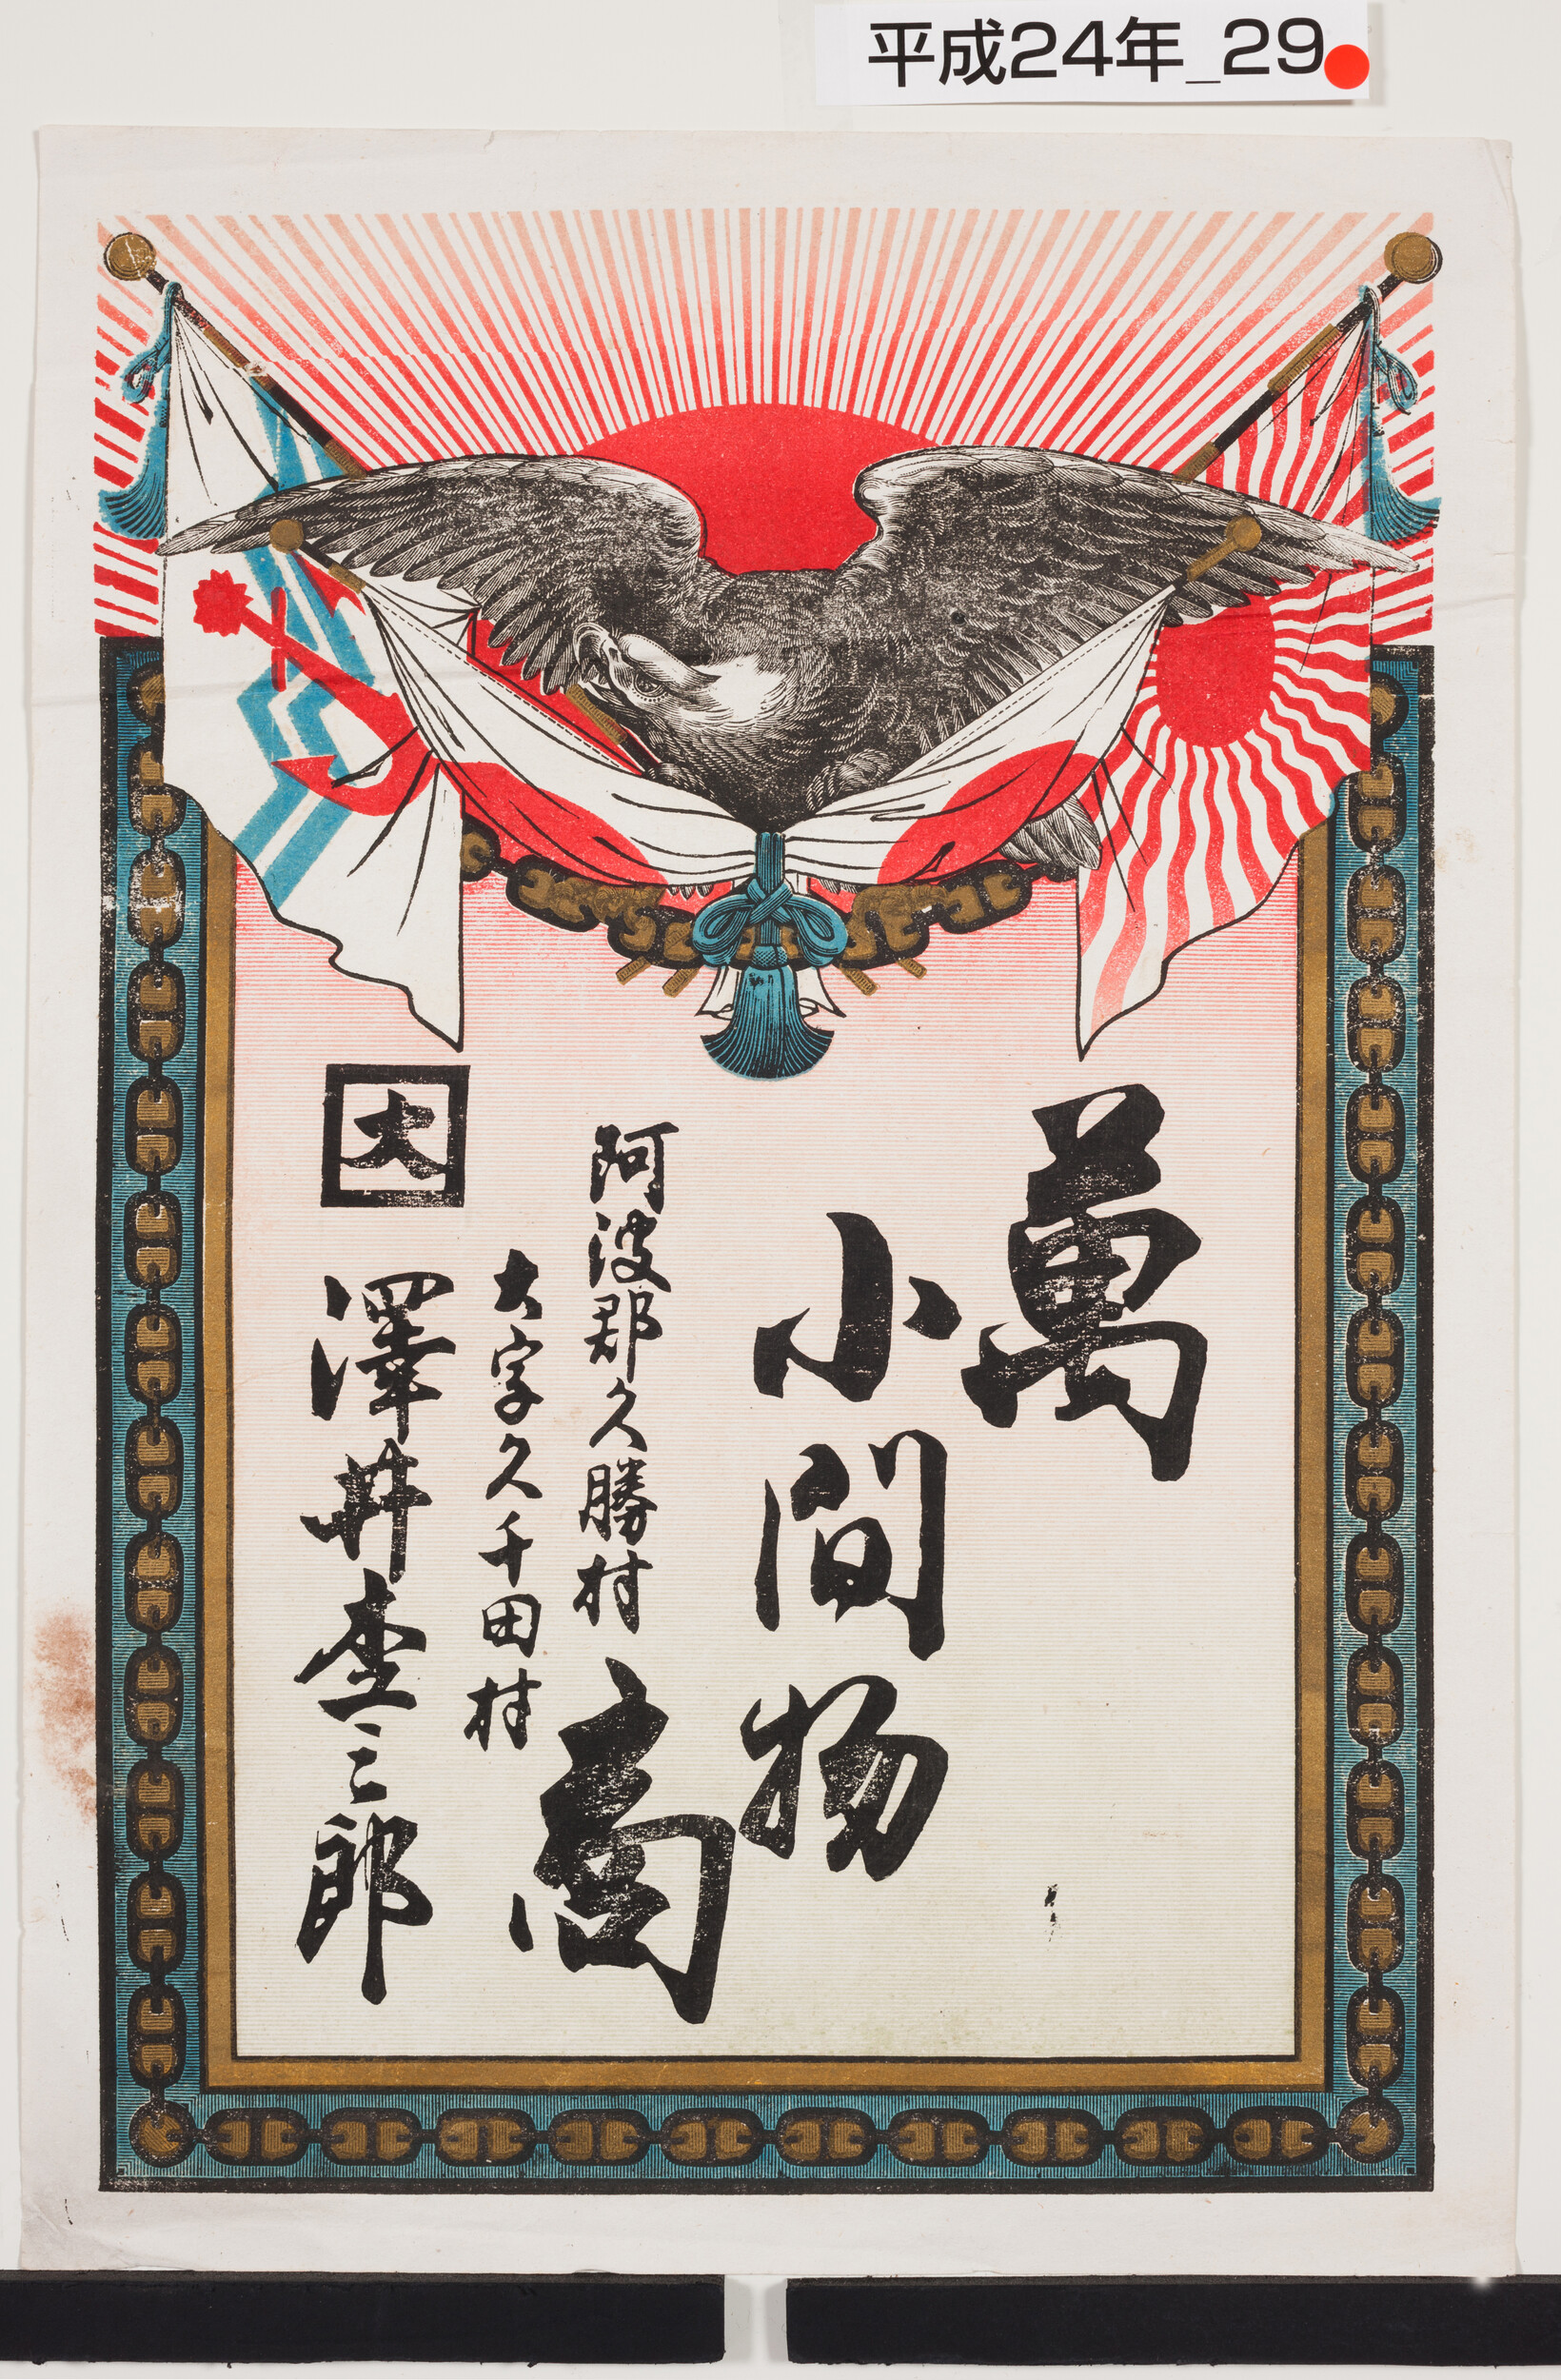 平成24年_29
萬
小間物
商
阿波郡久勝村
大字久千田村
大
澤井奎三郎